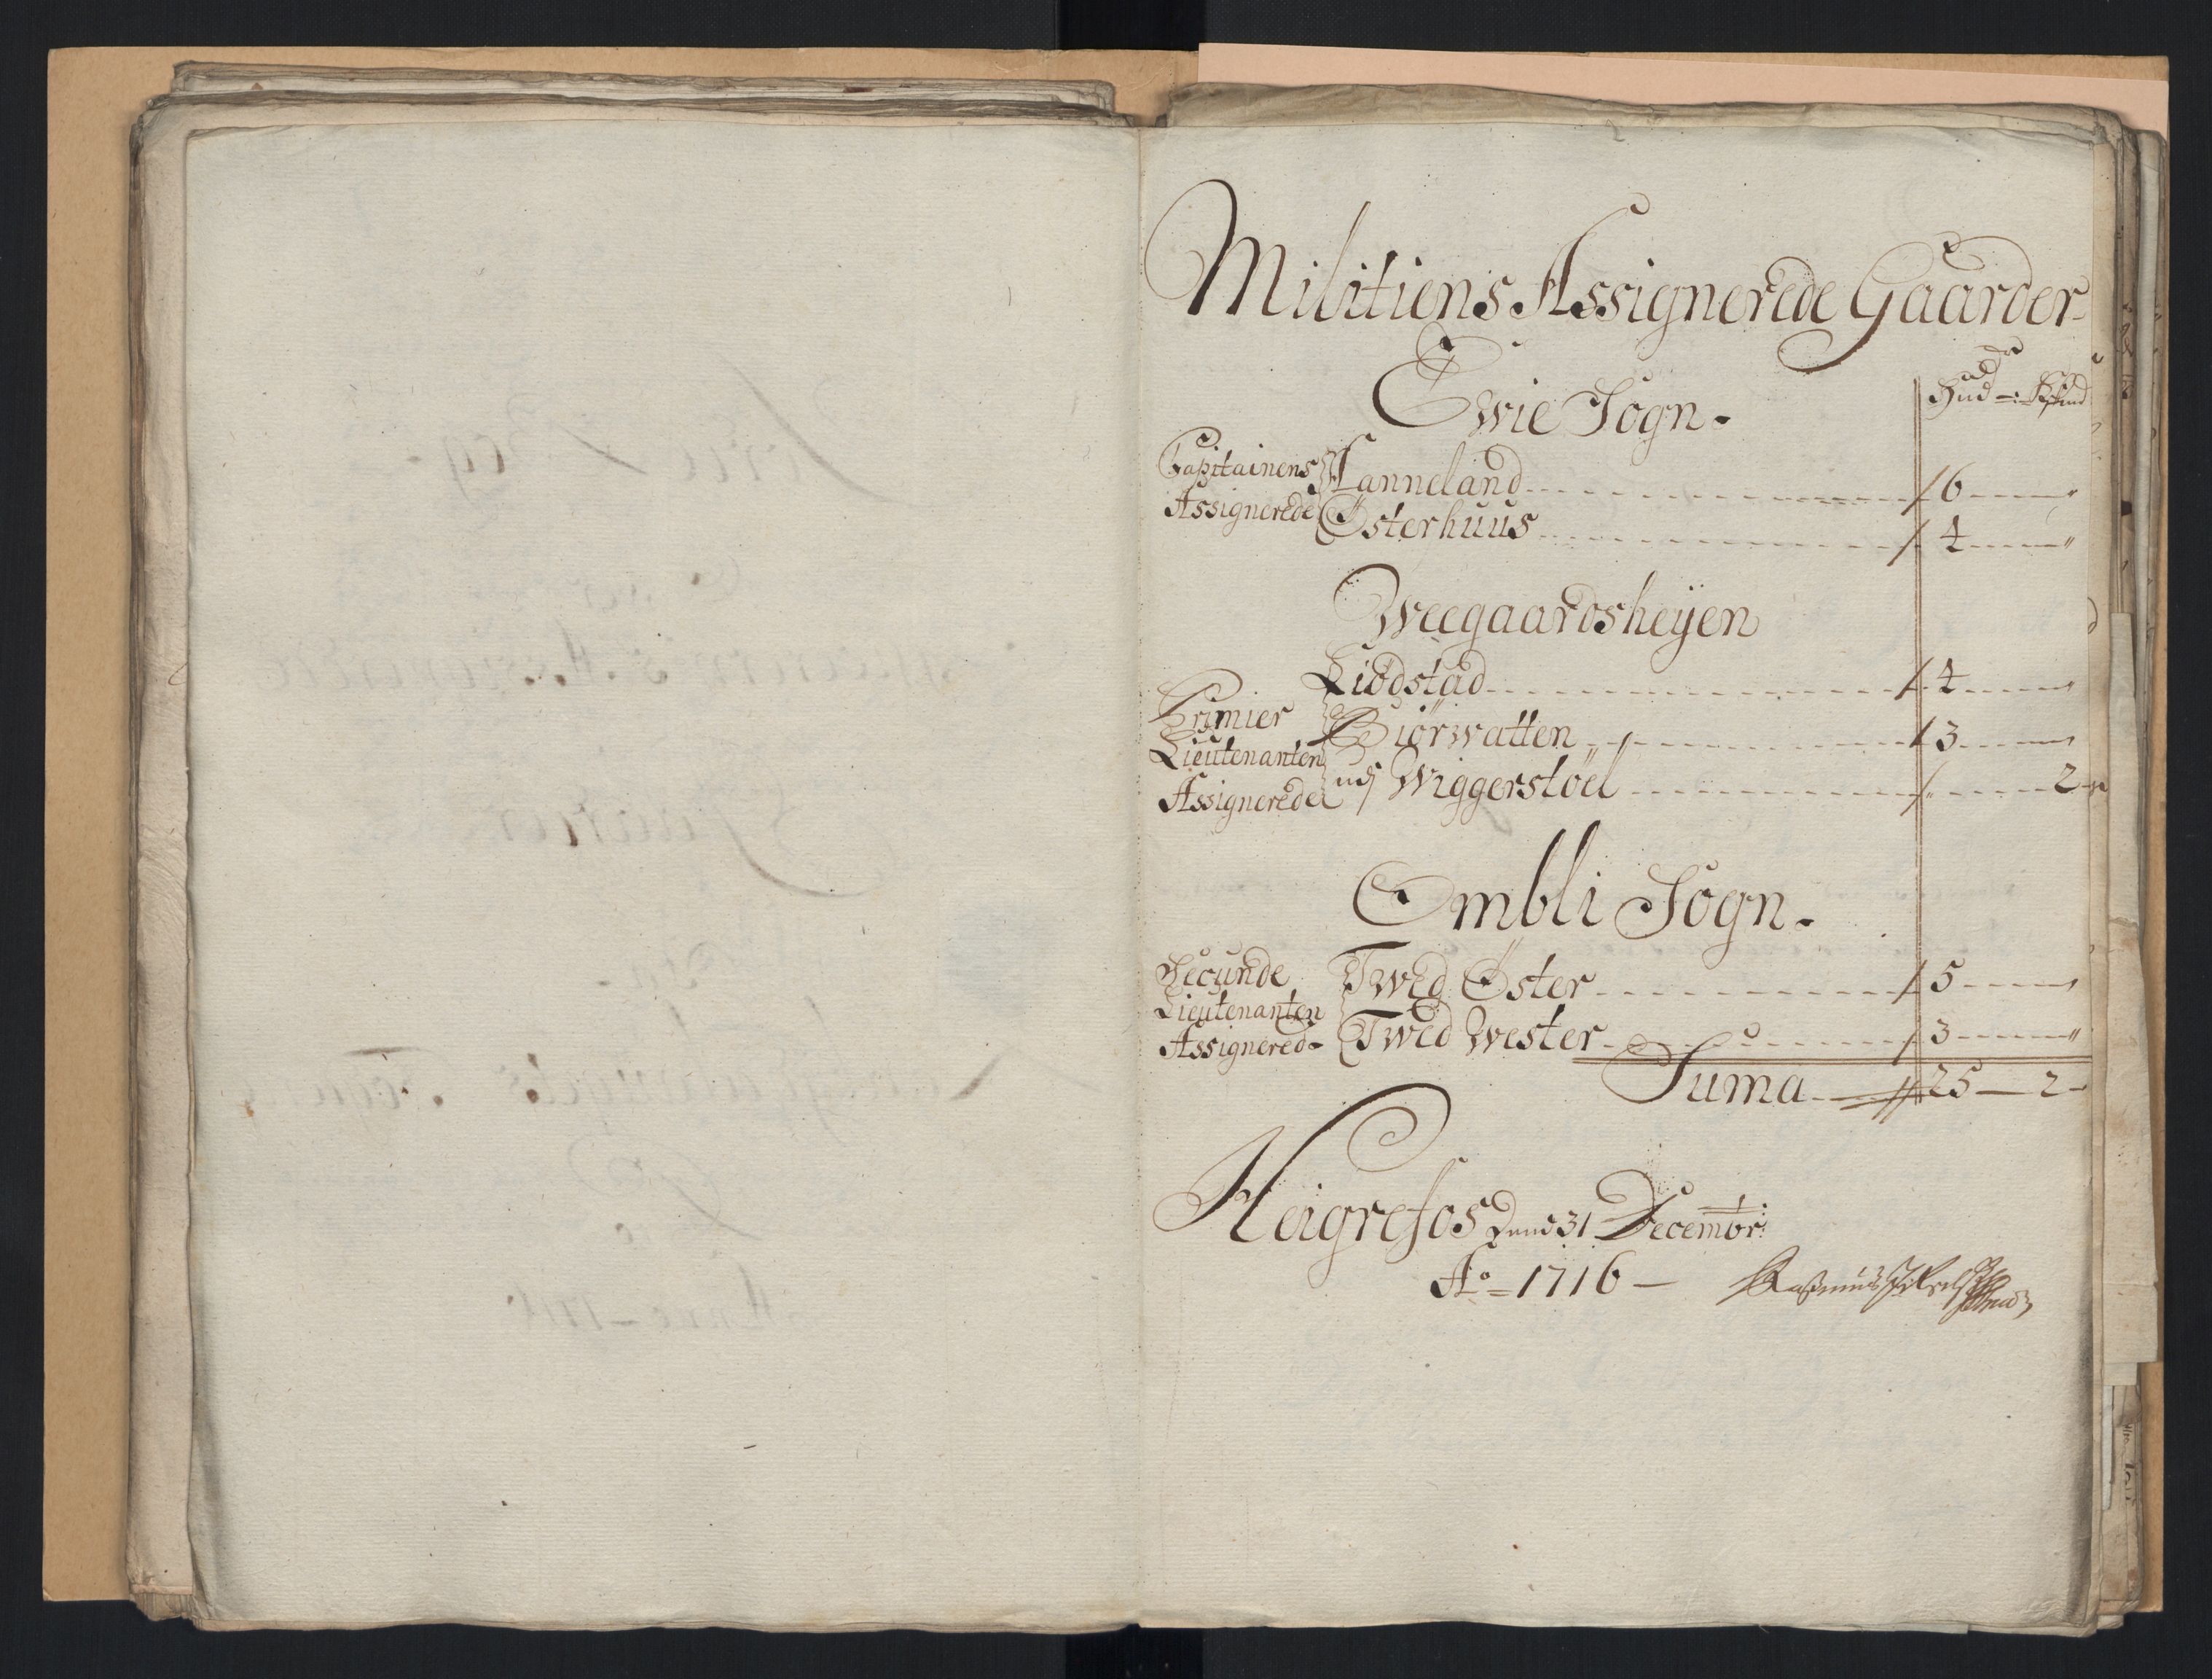 Militiens Assignerede Gaarder
Hud -: Skind
Ewie Sogn -
Capitainens Assignerede
Fanneland 6 "
Østerhuus 4 "
Weegaardsheijen
Primier Lieutenanten Assignerede
Liødstad 4 "
Biørwatten 3 "
udj Wiggerstøel " 2
Ombli Sogn -
Secunde Lieutenanten Assignered-
Twed Øster 5 "
Twed Wester 3 "
Suma 25 - 2 -
Heigrefos Dend 31 Decembr:
Ao = 1716 - Rasmus